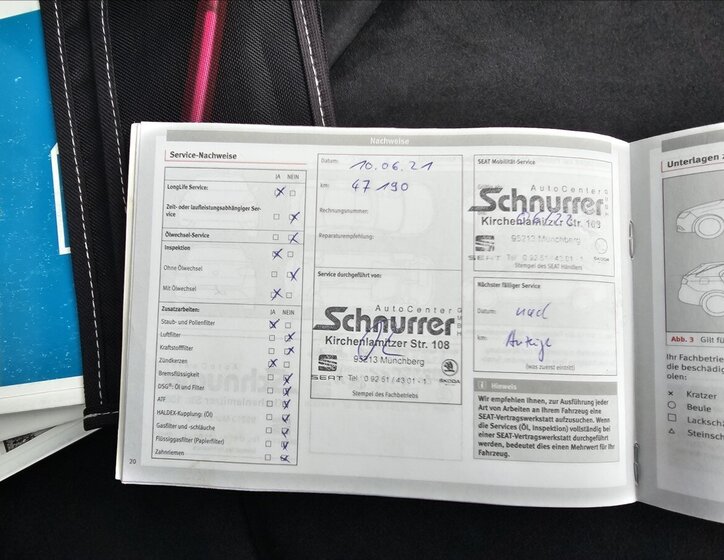 Nachweise
Service-Nachweise
JA NEIN
LongLife Service:
Zeit- oder laufleistungsabhängiger Ser-
vice
Ölwechsel-Service
Inspektion
Ohne Ölwechsel
Mit Ölwechsel
Zusatzarbeiten:
Staub- und Pollenfilter
Luftfilter
Kraftstofffilter
Zündkerzen
Bremsflüssigkeit
DSG®: Öl und Filter
ATF
HALDEX-Kupplung: (Öl)
Gasfilter und -schläuche
Flüssiggasfilter (Papierfilter)
Zahnriemen
20
Datum: 10.06.21
km: 47 190
Rechnungsnummer:
Reparaturempfehlung:
Service durchgeführt von:
AutoCenter GMBH
Schnurrer
Kirchenlamitzer Str. 108
95213 Münchberg
SEAT Tel 0 92 51 / 43 01 - 1 ŠKODA
Stempel des Fachbetriebs
SEAT Mobilität-Service
AutoCenter
Schnurrer
06/22
Kirchenlamitzer Str. 108
95213 Münchberg
SEAT Tel 0 92 51 / 43 01 - 1 ŠKODA
Stempel des SEAT Händlers
Nächster fälliger Service
Datum: nach
km: Anzeige
(was zuerst eintritt)
i Hinweis
Wir empfehlen Ihnen, zur Ausführung jeder
Art von Arbeiten an Ihrem Fahrzeug eine
SEAT-Vertragswerkstatt aufzusuchen. Wenn
die Services (Öl, Inspektion) vollständig bei
einer SEAT-Vertragswerkstatt durchgeführt
werden, bedeutet dies einen Mehrwert für Ihr
Fahrzeug.
Unterlagen
Abb. 3 Gilt fü
Ihr Fachbetrie
die beschädig
olen:
× Kratzer
○ Beule
□ Lackschä
△ Steinsch